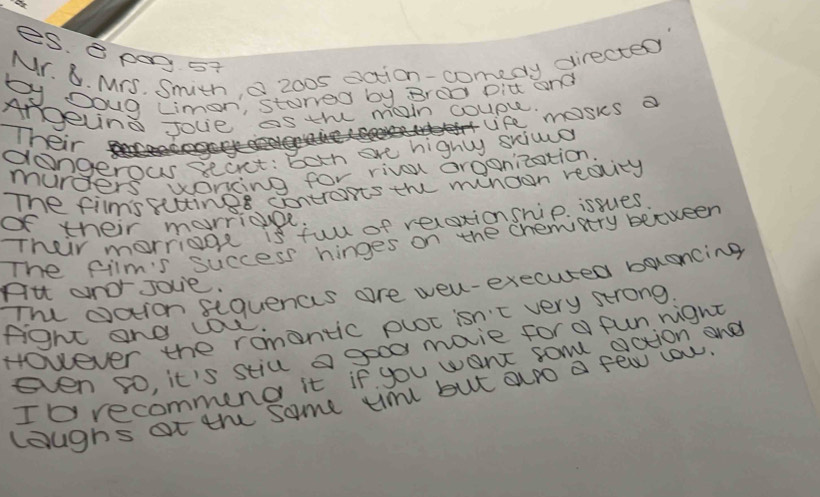 es. 8 pag. 57
Mr. & Mrs. Smith, a 2005 action-comedy directed
by Doug Liman, starred by Brad Pitt and
Angelina Jolie as the main couple.
Their life masks a
dangerous secret: both are highly skilled
murders working for rival organization.
The film's settings contrasts the mundan reality
of their marriage.
Their marriage is full of relationship issues.
The film's success hinges on the chemistry between
Pitt and Jolie.
The action sequences are well-executed balancing
fight and love.
However the romantic plot isn't very strong.
even so, it's still a good movie for a fun night
I'd recommend it if you want some action and
laughs at the same time but also a few love.